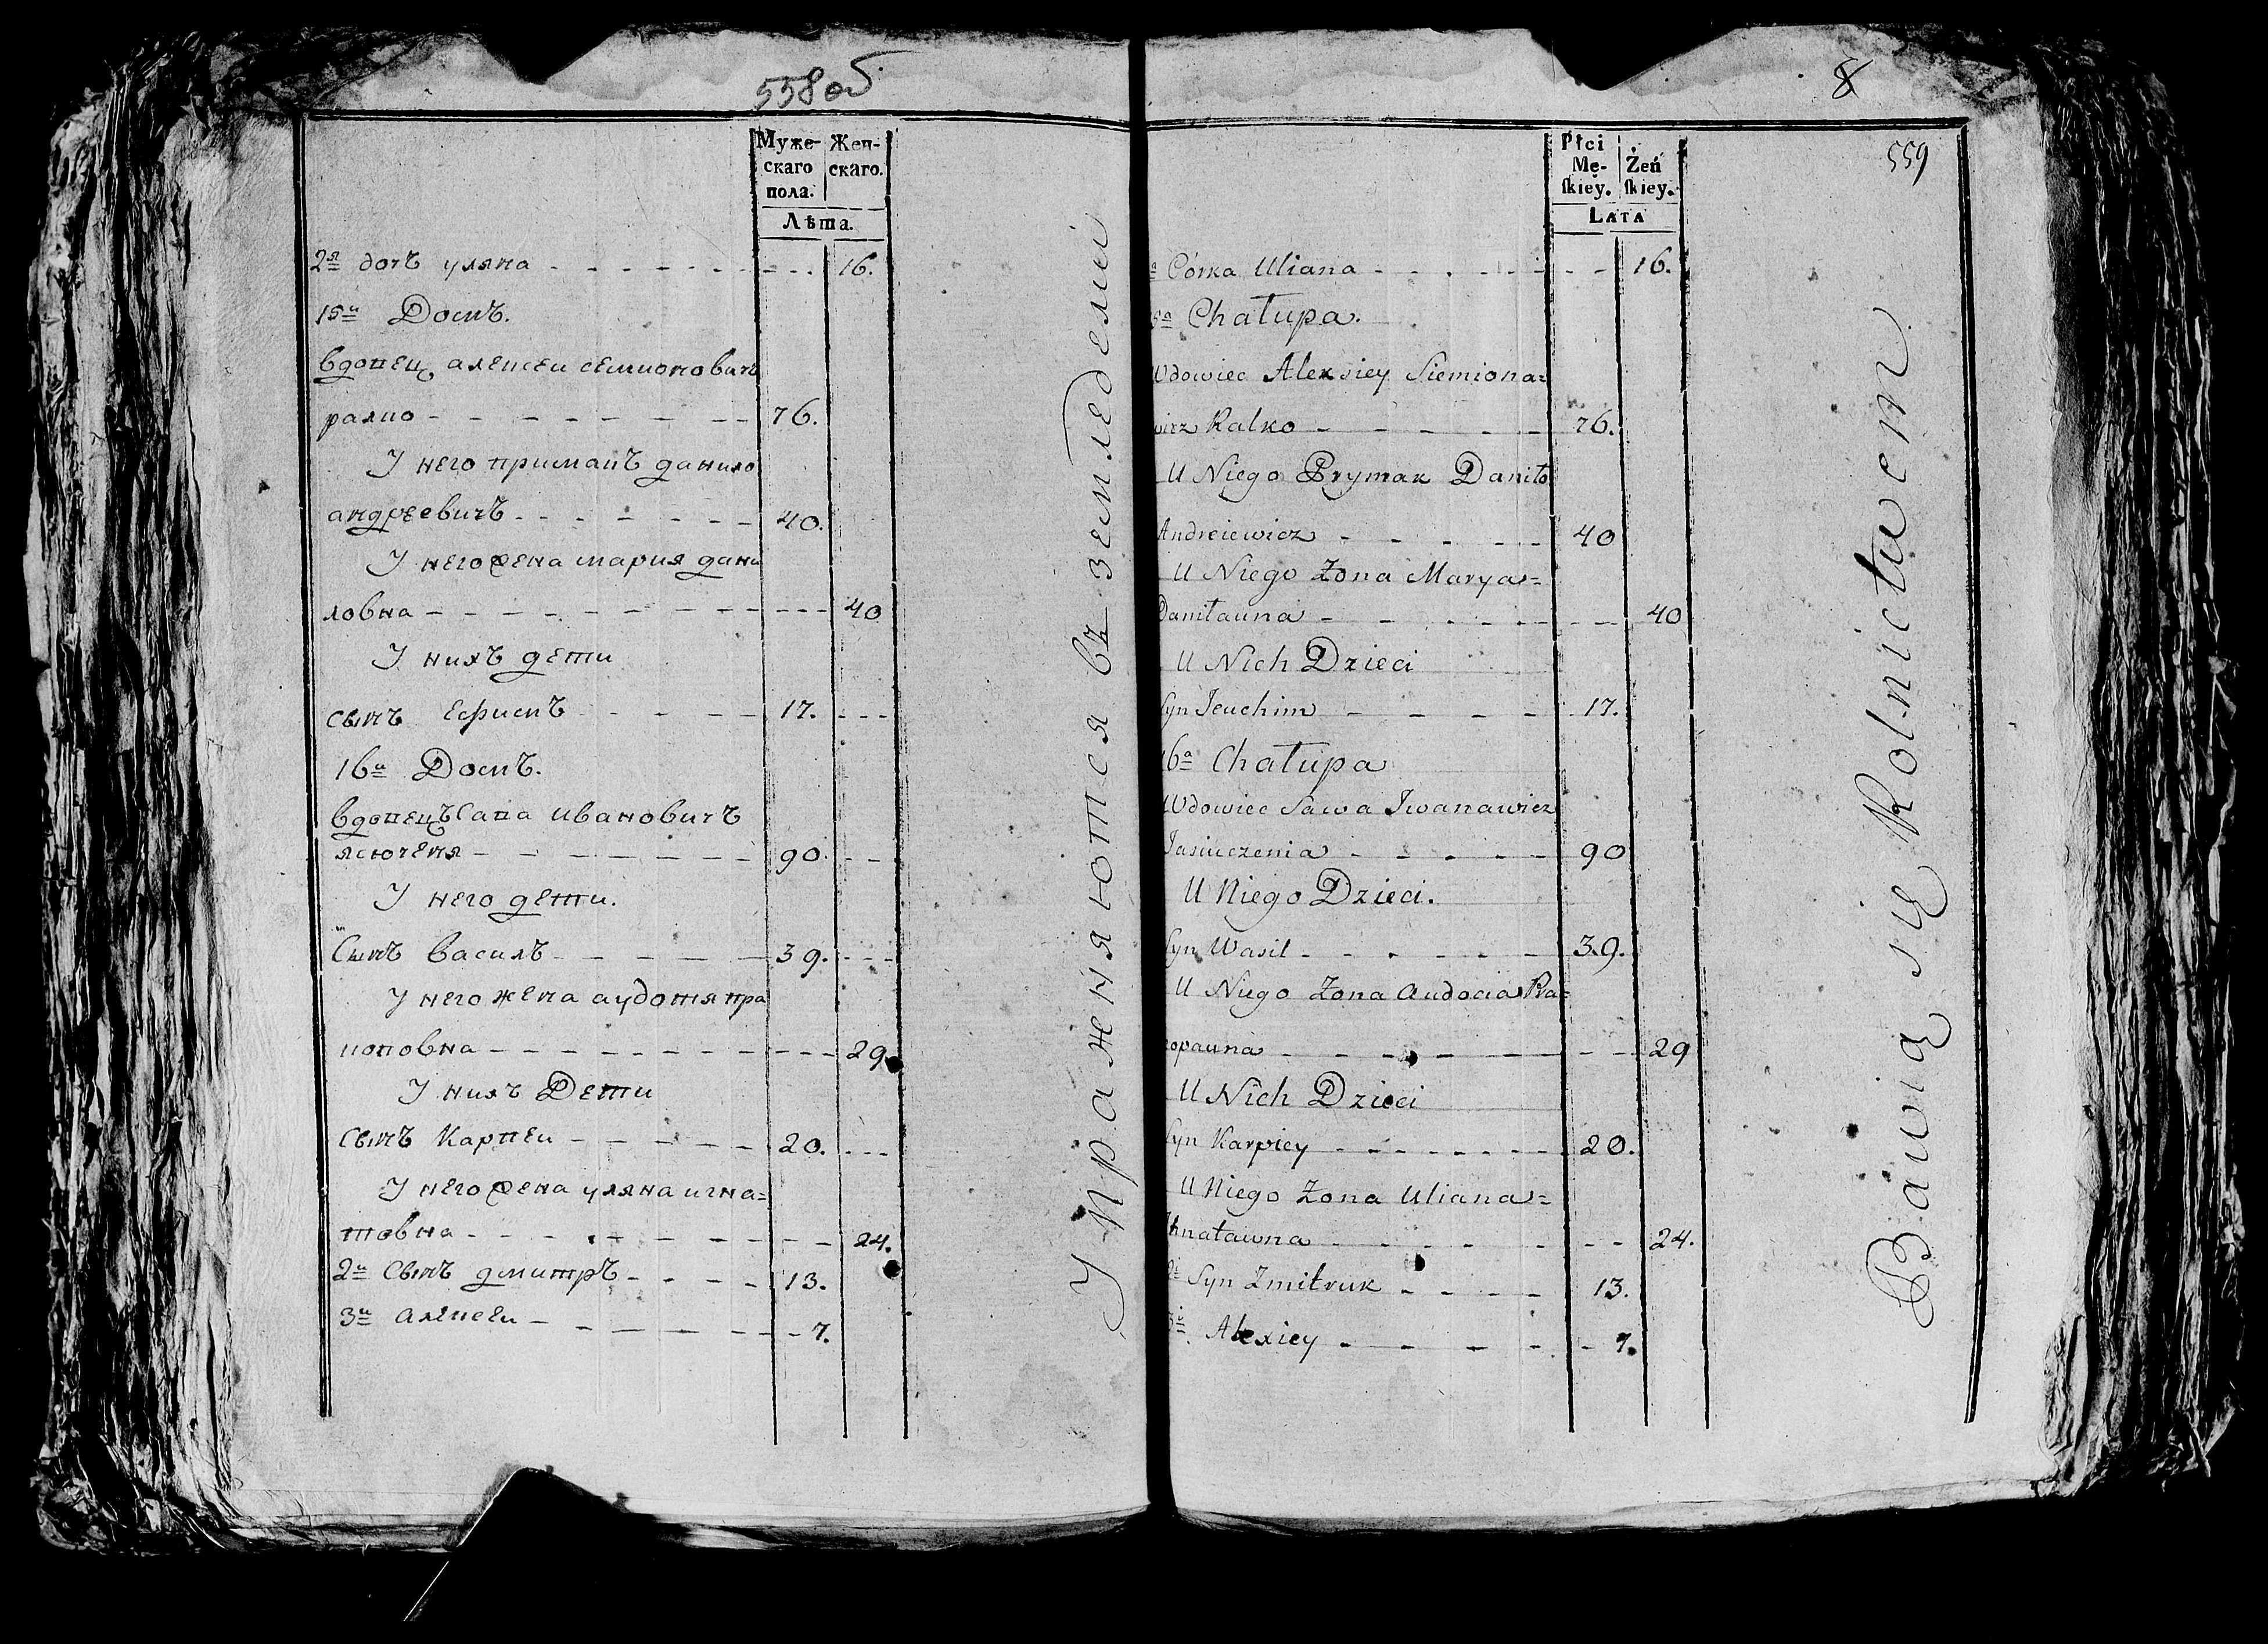 558 об
Муже-
скаго
пола.
Жен-
скаго.
Лѣта.
2я дочъ уляна - - - 16.
15й Домъ.
вдовец алексеи семионовичъ
ралко - - - 76.
У него примакъ данило
андреевичъ - - - 40.
У него жена мария дани
ловна - - - 40
У нихъ дети
сынъ Ефимъ - - - 17.
16й Домъ.
вдовецъ Сава ивановичъ
ясюченя - - - 90.
У него дети.
Сынъ василъ - - - 39.
У него жена аудотя пра
коповна - - - 29.
У нихъ Дети
сынъ Карпеи - - - 20.
У него жена уляна игна=
товна - - - 24.
2й сынъ дмитръ - - - 13.
3й алексеи - - - 7.
Упражняются въ земледелии
8
559
Płci
Mę-
ſkiey.
Żeń
ſkiey.
LATA
a Córka Uliana - - - 16.
5a Chałupa.
Wdowiec Alexsiey Siemiona=
wicz Ralko - - - 76.
U Niego Prymak Daniło
Andreiewicz - - - 40
U Niego Żona Marya=
Daniłauna - - - 40
U Nich Dzieci
Syn Jeuchim - - - 17.
16a Chałupa
Wdowiec Sawa Iwanawicz
Jasiuczenia - - - 90
U Niego Dzieci.
Syn Wasil - - - 39.
U Niego Żona Audocia Pra=
kopauna - - - 29
U Nich Dzieci
Syn Karpiey - - - 20.
U Niego Żona Uliana=
Ihnatawna - - - 24.
2i Syn Zmitruk - - - 13.
3i Alexiey - - - 7.
Bawią się Rolnictwem.